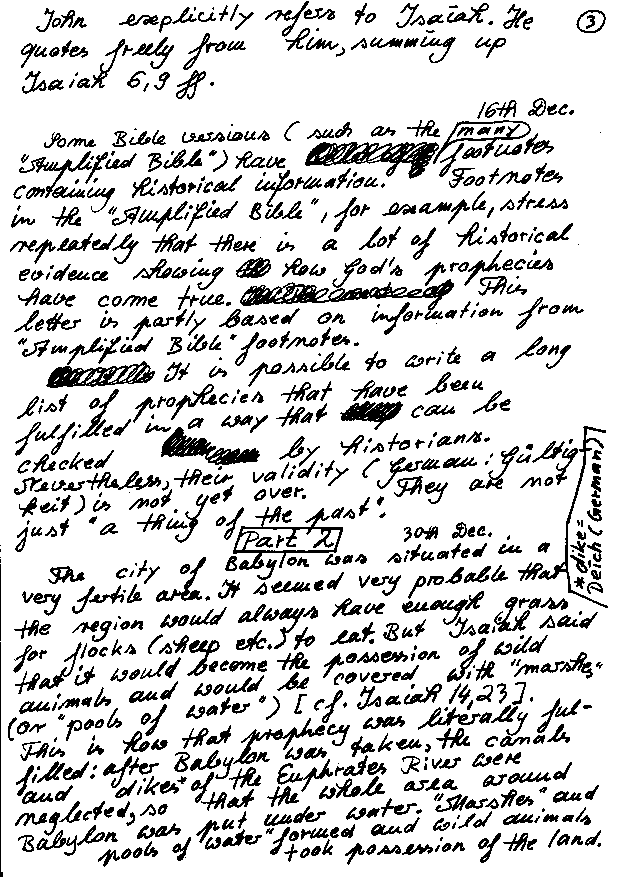 John explicitly refers to Isaiah. He
③
quotes freely from him, summing up
Isaiah 6,9 ff.
16th Dec.
Some Bible versions (such as the many
"Amplified Bible") have footnotes
containing historical information. Footnotes
in the "Amplified Bible", for example, stress
repeatedly that there is a lot of historical
evidence showing how God's prophecies
have come true. This
letter is partly based on information from
"Amplified Bible" footnotes.
It is possible to write a long
list of prophecies that have been
fulfilled in a way that can be
checked by historians.
Nevertheless, their validity (German: Gültig-
keit) is not yet over. They are not
just "a thing of the past".
Part 2
30th Dec.
The city of Babylon was situated in a
very fertile area. It seemed very probable that
the region would always have enough grass
for flocks (sheep etc.) to eat. But Isaiah said
that it would become the possession of wild
animals and would be covered with "marshes"
(or "pools of water") [cf. Isaiah 14,23].
This is how that prophecy was literally ful-
filled: after Babylon was taken, the canals
and "dikes" of the Euphrates River were
neglected, so that the whole area around
Babylon was put under water. "Marshes" and
"pools of water" formed and wild animals
took possession of the land.
*dike=
Deich (German)